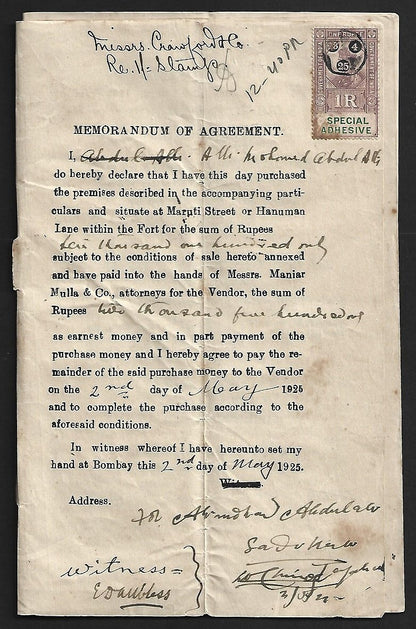 Messrs. Crawford & Co.
Re. 1/- Stamp
12-40 PM
GOVERNMENT OF INDIA
4
25
1R
SPECIAL
ADHESIVE
MEMORANDUM OF AGREEMENT.
I, Abdul Alli. Alli Mohomed Abdul Alli
do hereby declare that I have this day purchased
the premises described in the accompanying parti-
culars and situate at Maruti Street or Hanuman
Lane within the Fort for the sum of Rupees
ten thousand one hundred only
subject to the conditions of sale hereto annexed
and have paid into the hands of Messrs. Maniar
Mulla & Co., attorneys for the Vendor, the sum of
Rupees two thousand five hundred only
as earnest money and in part payment of the
purchase money and I hereby agree to pay the re-
mainder of the said purchase money to the Vendor
on the 2nd day of May 1925
and to complete the purchase according to the
aforesaid conditions.
In witness whereof I have hereunto set my
hand at Bombay this 2nd day of May 1925.
Witness
Address.
for Abdulally
witness =